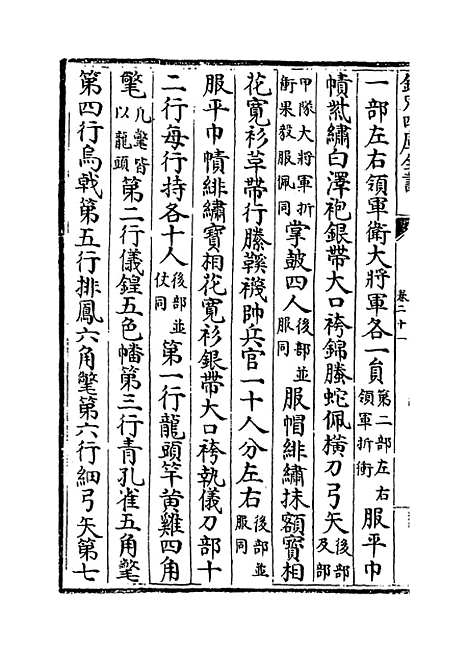 欽定四庫全書
卷二十一
一部左右領軍衛大將軍各一員第二部左右領軍折衝服平巾
幘紫繡白澤袍銀帶大口袴錦螣蛇佩橫刀弓矢後部及部
甲隊大將軍折衝果毅服佩同掌鼓四人後部並服同服帽緋繡抹額寶相
花寛衫草帶行縢鞵襪帥兵官一十人分左右後部並服同
服平巾幘緋繡寶相花寛衫銀帶大口袴執儀刀部十
二行每行持各十人後部並仗同第一行龍頭竿黄雞四角
氅凡氅皆以龍頭第二行儀鍠五色幡第三行青孔雀五角氅
第四行烏戟第五行排鳳六角氅第六行細弓矢第七